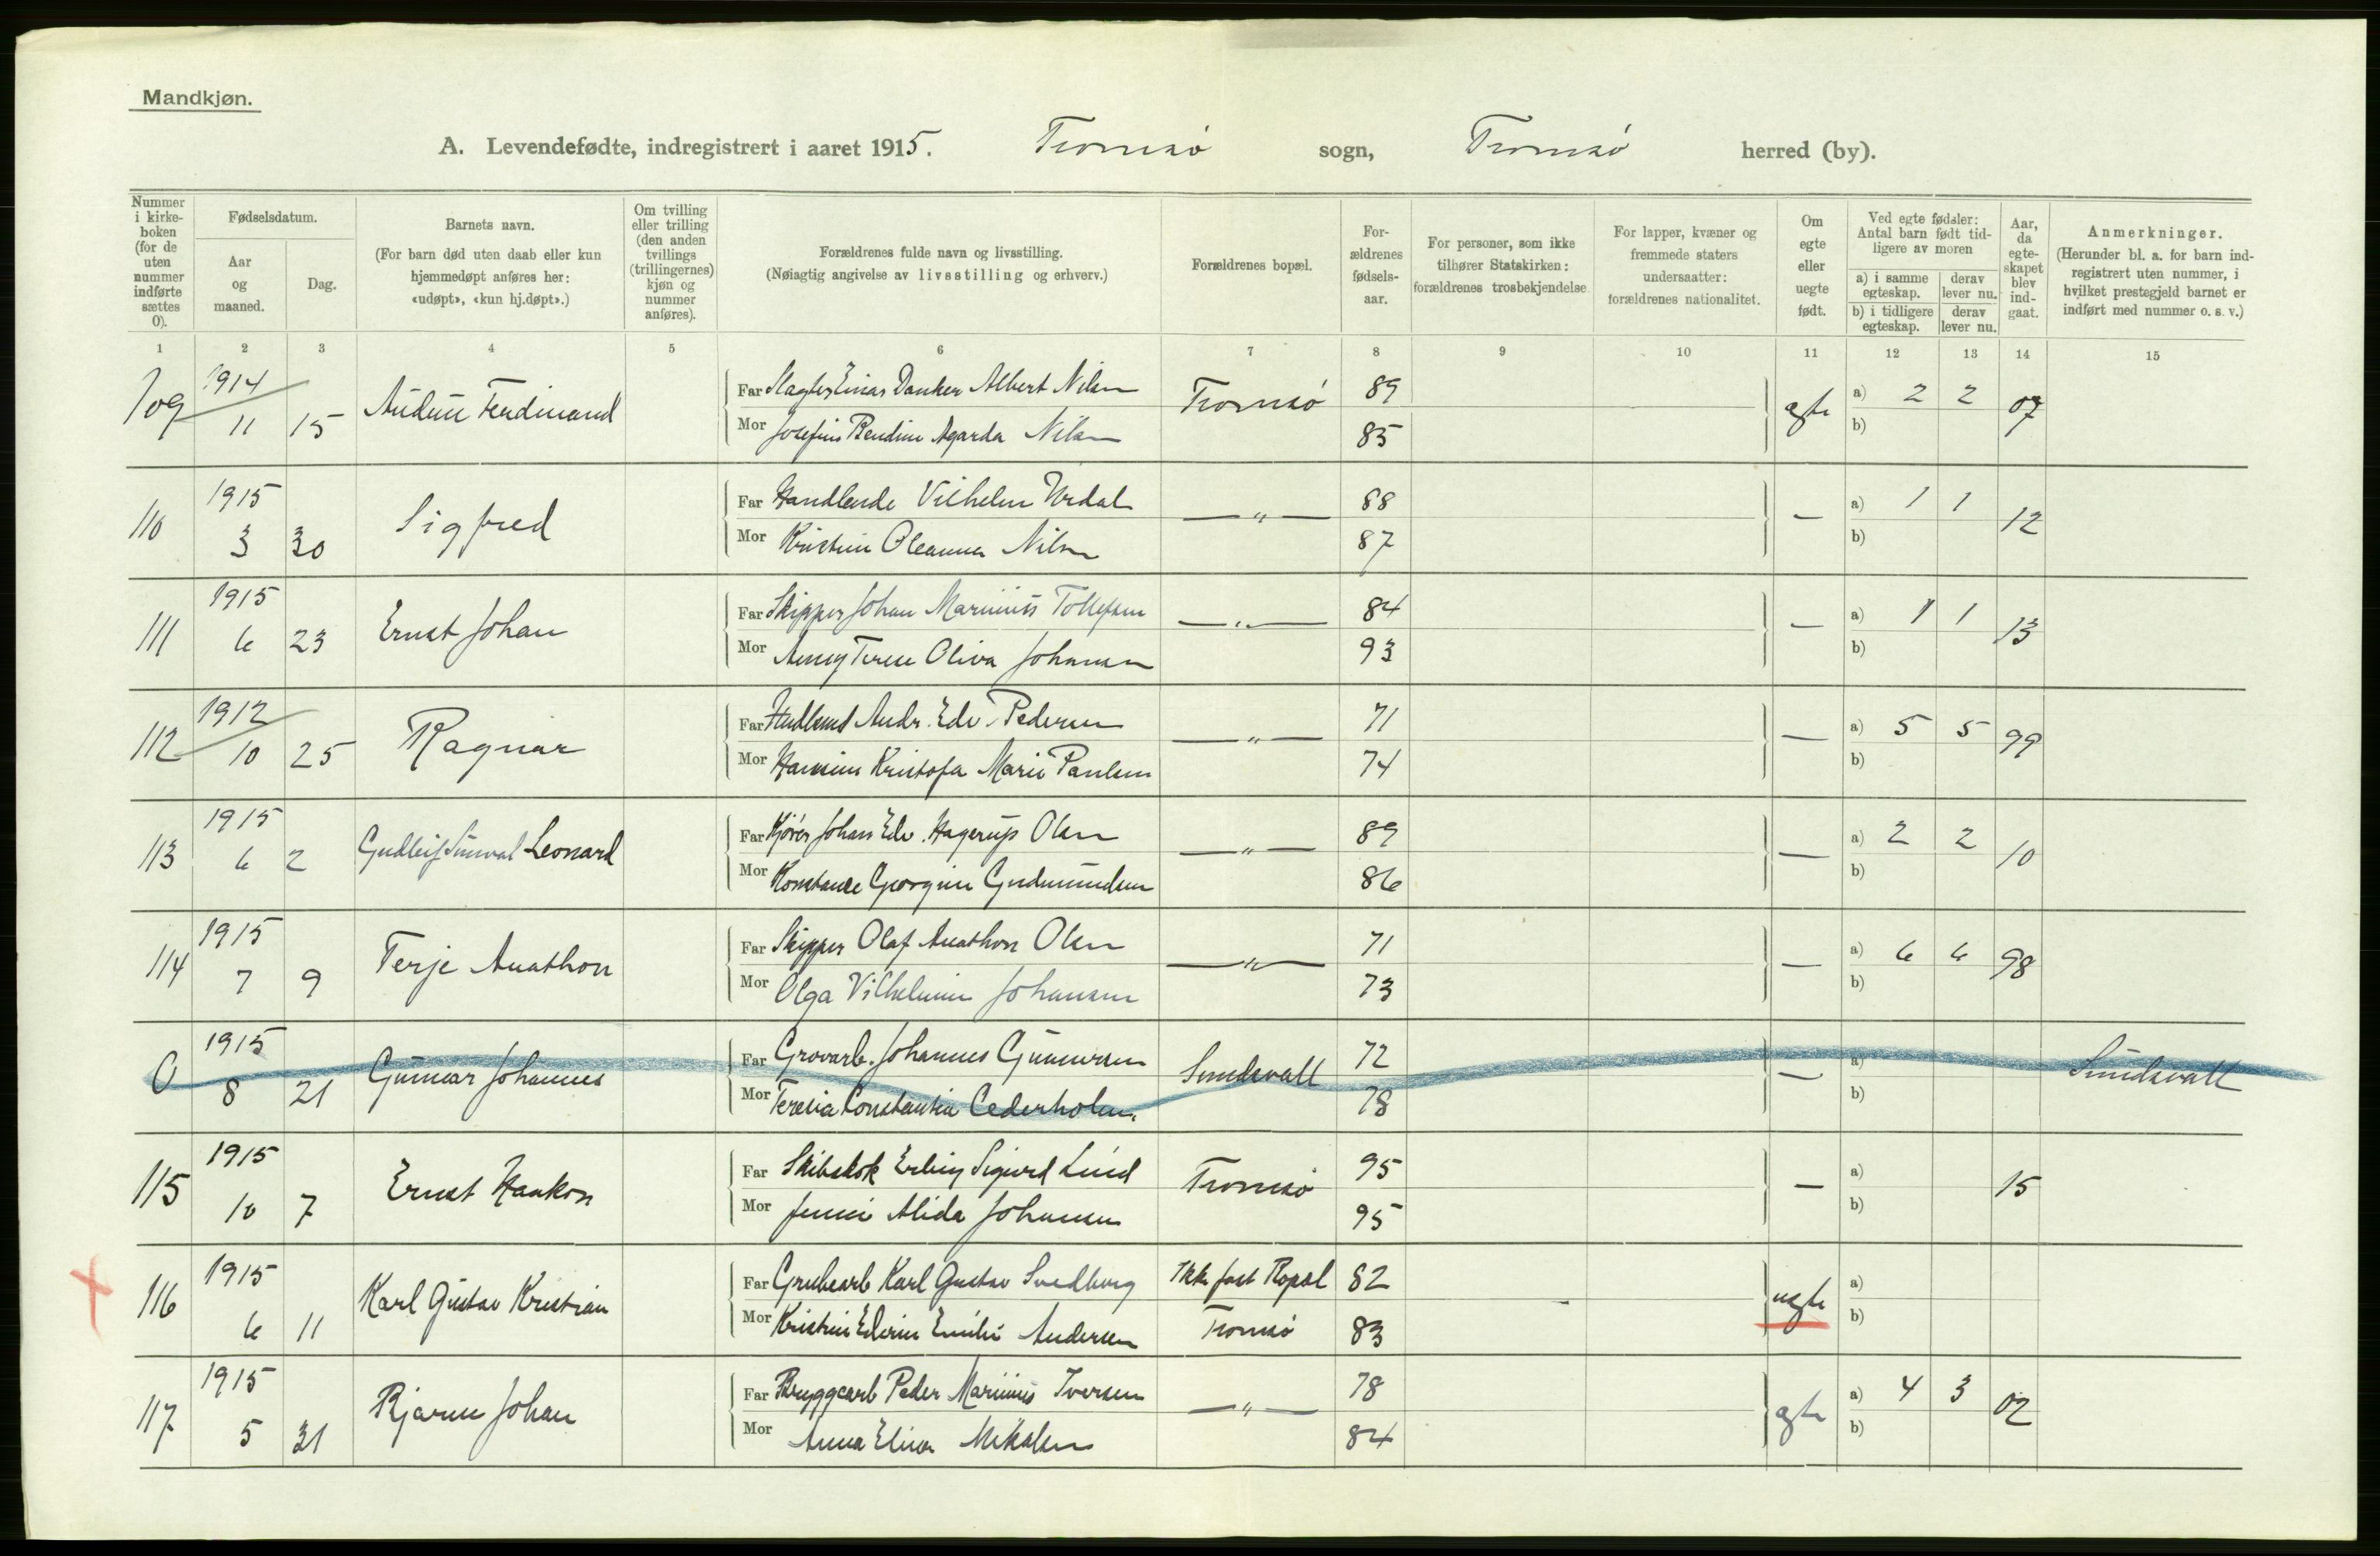 Mandkjøn.
A. Levendefødte, indregistrert i aaret 1915. Tromsø sogn, Tromsø herred (by).
Nummer i kirke-boken (for de uten nummer indførte sættes 0).
Fødselsdatum.
Aar og maaned.
Dag.
Barnets navn.
(For barn død uten daab eller kun hjemmedøpt anføres her: «udøpt», «kun hj.døpt».)
Om tvilling eller trilling (den anden tvillings (trillingernes) kjøn og nummer anføres).
Forældrenes fulde navn og livsstilling.
(Nøiagtig angivelse av livsstilling og erhverv.)
Forældrenes bopæl.
For-ældrenes fødsels-aar.
For personer, som ikke tilhører Statskirken: forældrenes trosbekjendelse.
For lapper, kvæner og fremmede staters undersaatter: forældrenes nationalitet.
Om egte eller uegte født.
Ved egte fødsler: Antal barn født tid-ligere av moren
a) i samme egteskap. derav lever nu.
b) i tidligere egteskap. derav lever nu.
Aar, da egte-skapet blev ind-gaat.
Anmerkninger.
(Herunder bl. a. for barn ind-registrert uten nummer, i hvilket prestegjeld barnet er indført med nummer o. s. v.)
1 2 3 4 5 6 7 8 9 10 11 12 13 14 15
109 1914 11 15 Audun Ferdinand
Far Slagter Einar Danker Albert Nilsen Tromsø 89 egte a) 2 2 07
Mor Josefine Bendine Agarda Nilsen 85 b)
110 1915 3 30 Sigfred
Far Handlende Vilhelm Urdal — " — 88 — a) 1 1 12
Mor Kristine Oleanna Nilsen 87 b)
111 1915 6 23 Ernst Johan
Far Skipper Johan Marinius Tollefsen — " — 84 — a) 1 1 13
Mor Terese Oliva Johansen 93 b)
112 1912 10 25 Ragnar
Far Andr. Edv. Pedersen — " — 71 — a) 5 5 99
Mor Kristofa Marie Paulsen 74 b)
113 1915 6 2 Gudleif Leonard
Far Johan Edv. Hagerup Olsen — " — 89 — a) 2 2 10
Mor Konstance Georgine Gudmundsen 86 b)
114 1915 7 9 Terje Anathon
Far Skipper Olaf Anathon Olsen — " — 71 — a) 6 6 98
Mor Olga Vilhelmine Johansen 73 b)
0 1915 8 21 Gunnar Johannes
Far Grovarb. Johannes Gunnersen Sundsvall 72 — a) Sundsvall
Mor Teresia Constantia Cederholm. 78 b)
115 1915 10 7 Ernst Haakon
Far Skibskok Erling Sigurd Lund Tromsø 95 — a) 15
Mor Jenni Alida Johansen 95 b)
116 1915 6 11 Karl Gustav Kristian
Far Grubearb Karl Gustav Svedberg Ikke fast Bopæl 82 uegte a)
Mor Kristine Edvine Emilie Andersen Tromsø 83 b)
117 1915 5 31 Bjarne Johan
Far Bryggearb Peder Marinius Iversen — " — 78 egte a) 4 3 02
Mor Anna Elina Mikalsen 84 b)